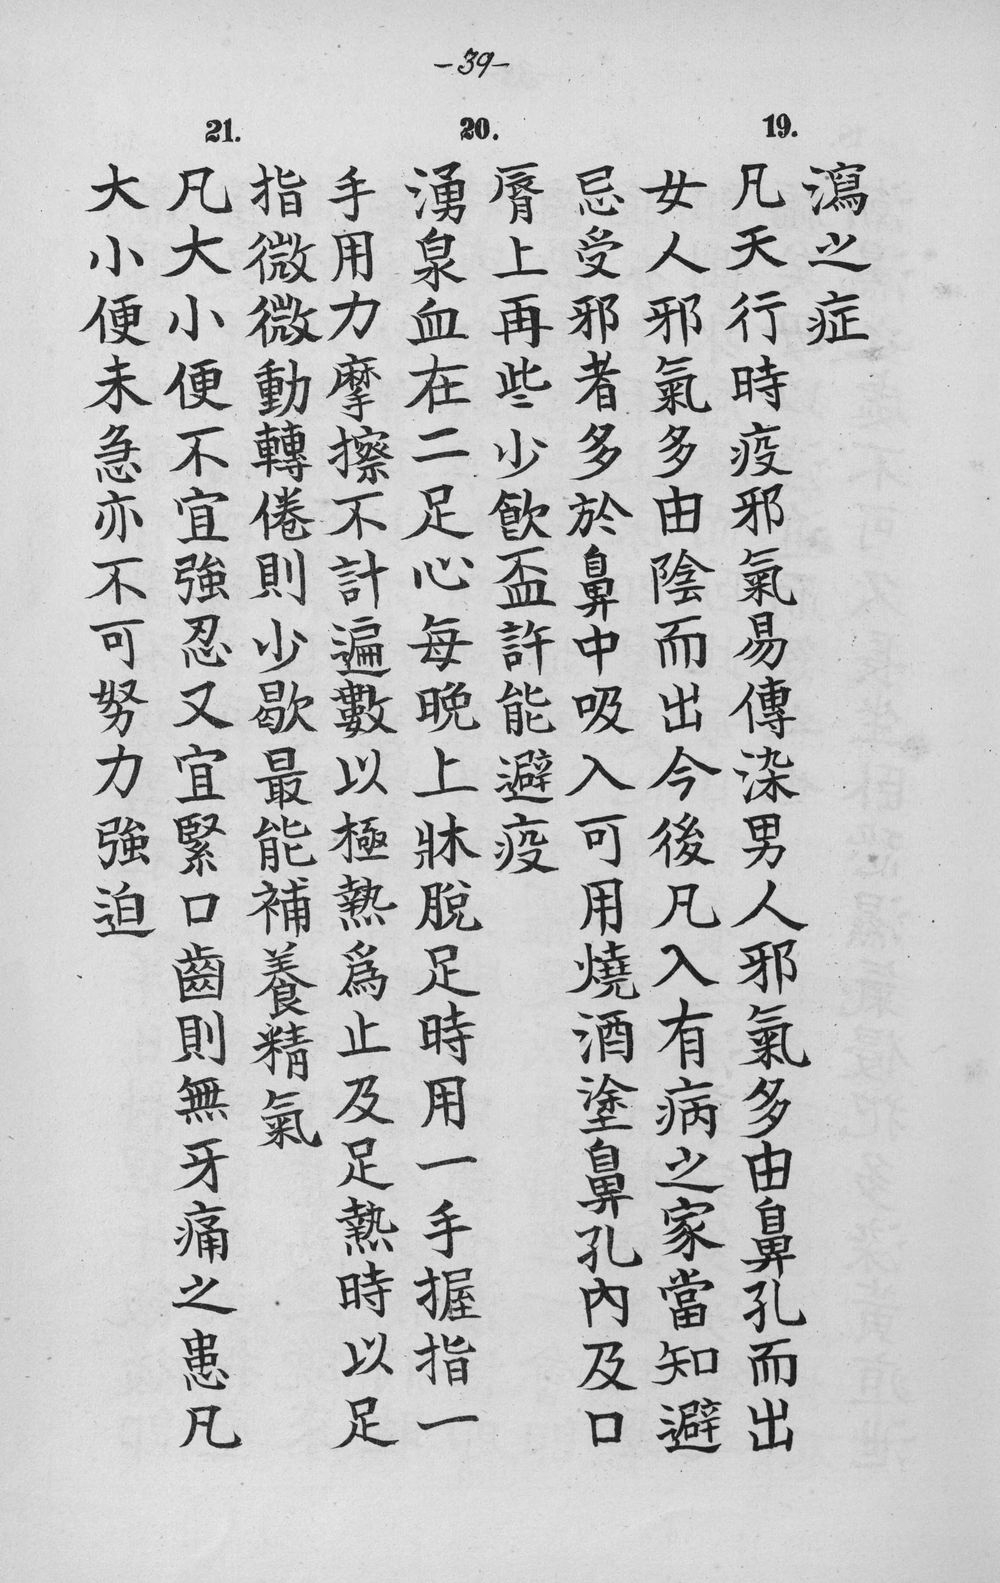 -39-
19.
20.
21.
瀉之症
凡天行時疫邪氣易傳染男人邪氣多由鼻孔而出
女人邪氣多由陰而出今後凡入有病之家當知避
忌受邪者多於鼻中吸入可用燒酒塗鼻孔內及口
脣上再些少飮盃許能避疫
湧泉血在二足心每晚上牀脫足時用一手握指一
手用力摩擦不計遍數以極熱爲止及足熱時以足
指微微動轉倦則少歇最能補養精氣
凡大小便不宜強忍又宜緊口齒則無牙痛之患凡
大小便未急亦不可努力強迫